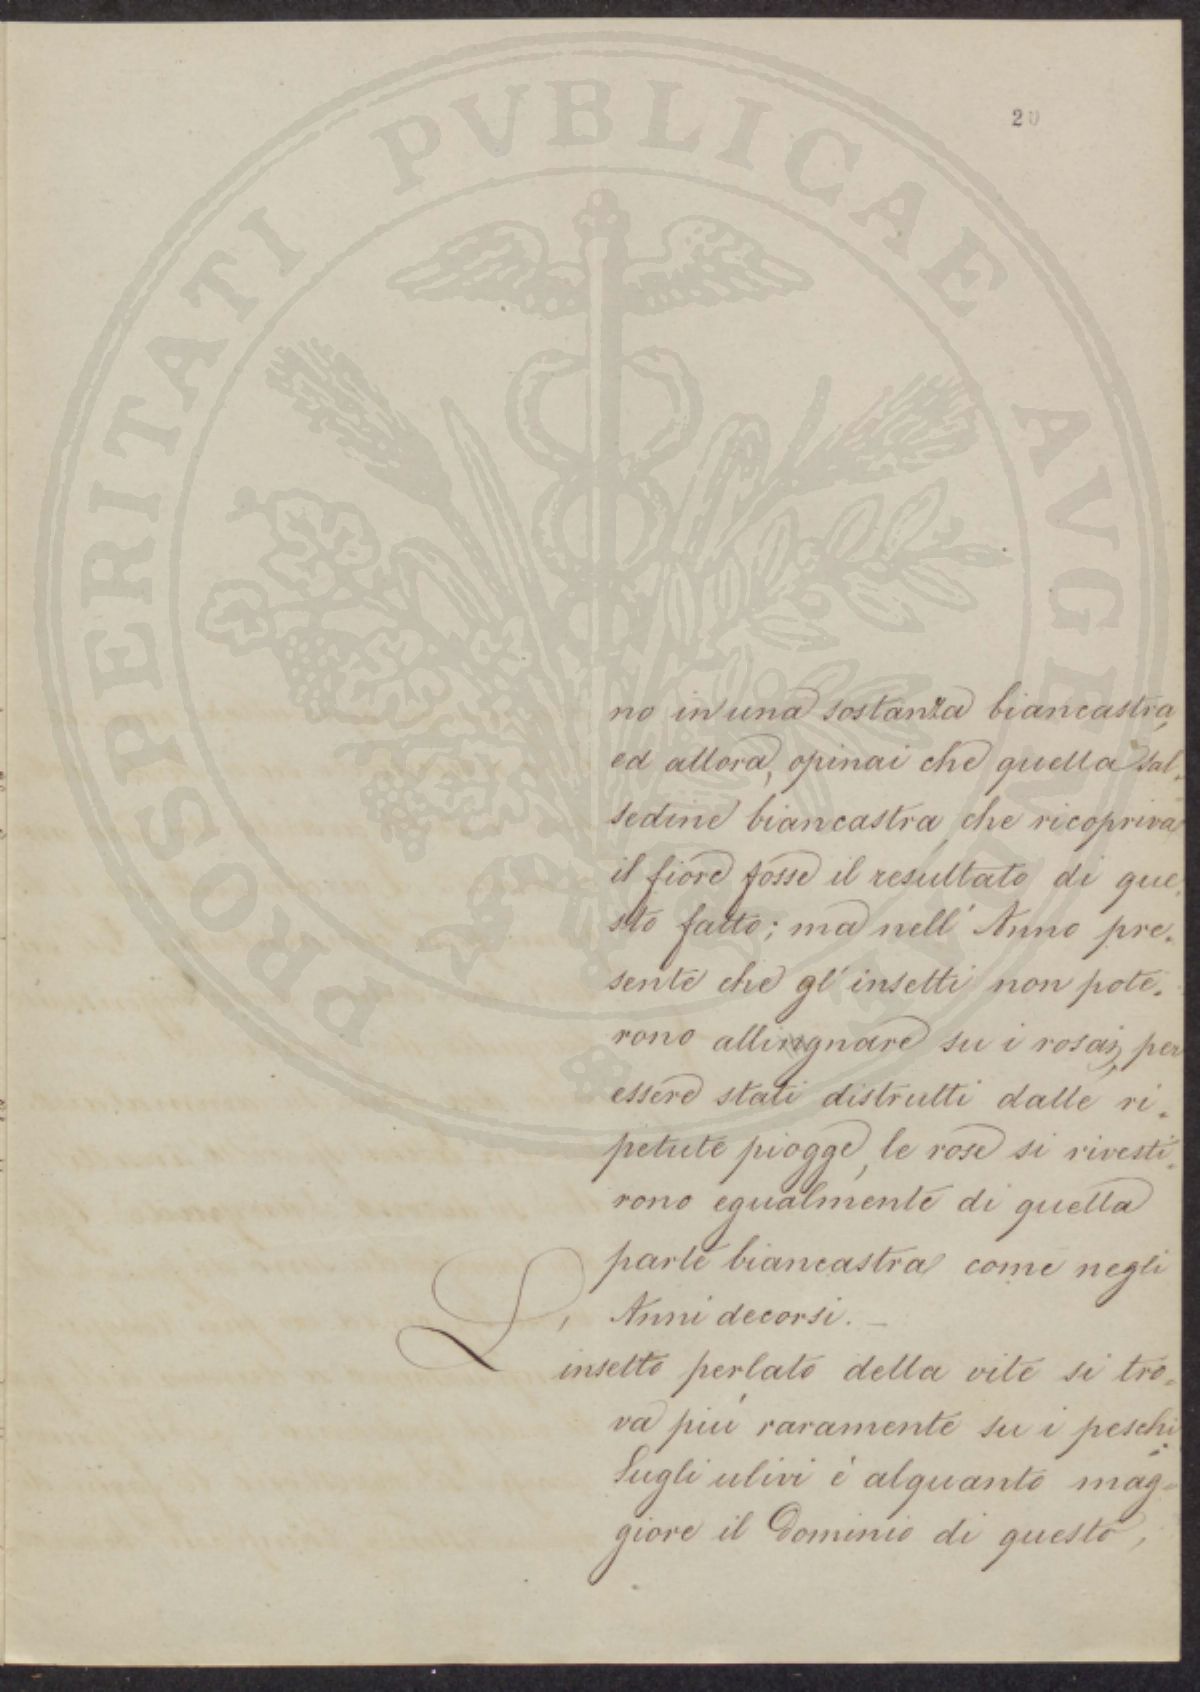 20
PROSPERITATI PUBLICAE AVGENDAE
no in una sostanza biancastra,
ed allora, opinai che quella sal-
sedine biancastra, che ricopriva
il fiore fosse il resultato di que-
sto fatto; ma nell' Anno pre-
sente che gl' insetti non pote-
rono allingnare su i rosai, per
essere stati distrutti dalle ri-
petute piogge, le rose si rivesti-
rono egualmente di quella
parte biancastra come negli
Anni decorsi. —
L' insetto perlato della vite si tro-
va piú raramente su i peschi
Sugli ulivi é alquanto mag-
giore il Dominio di questo,